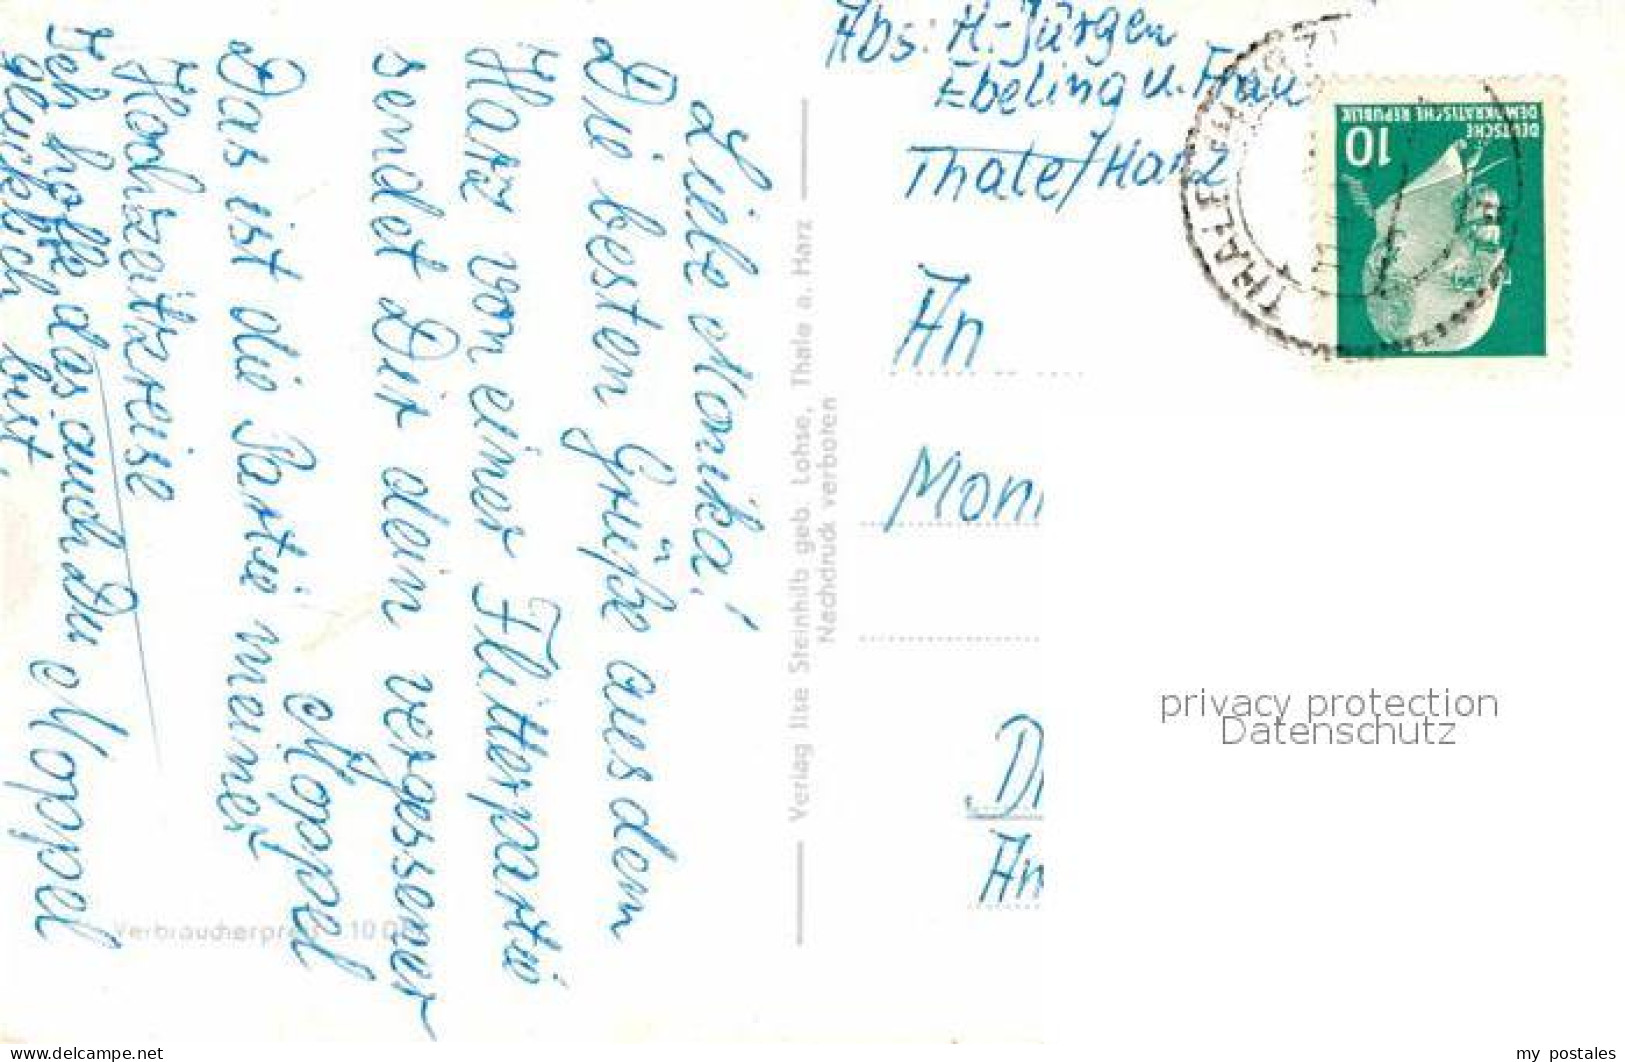 Liebe Monika!
Die besten Grüße aus dem
Harz von einer Flitterpartie
sendet Dir dein vergessener
Moppel
Das ist die Partie meiner
Hochzeitzreise
Ich hoffe das auch Du
glücklich bist.
Moppel
Verbraucherpreis 10
Verlag Ilse Steinhilb geb. Lohse, Thale a. Harz
Nachdruck verboten
Abs: H.-Jürgen
Ebeling u. Frau
Thale/Harz
DEUTSCHE
DEMOKRATISCHE REPUBLIK
10
THALE
An
Moni
D
An
privacy protection
Datenschutz
my postales
www.delcampe.net